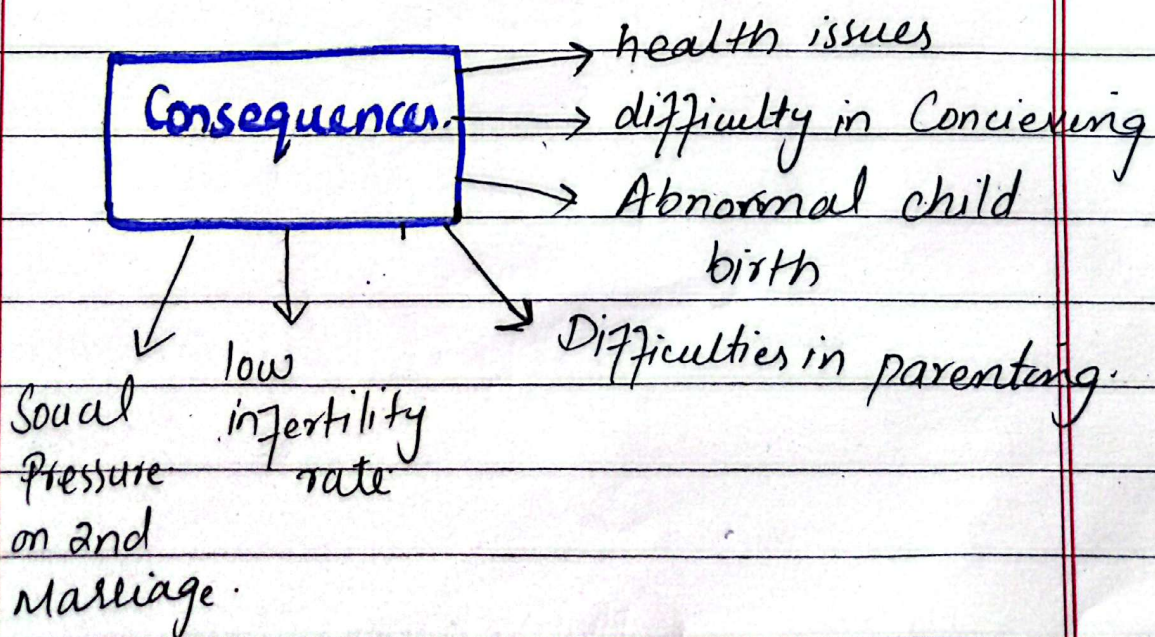 Consequences.
health issues
difficulty in Concieving
Abnormal child
birth
Difficulties in parenting.
low
infertility
rate
Social
Pressure
on 2nd
Marriage.